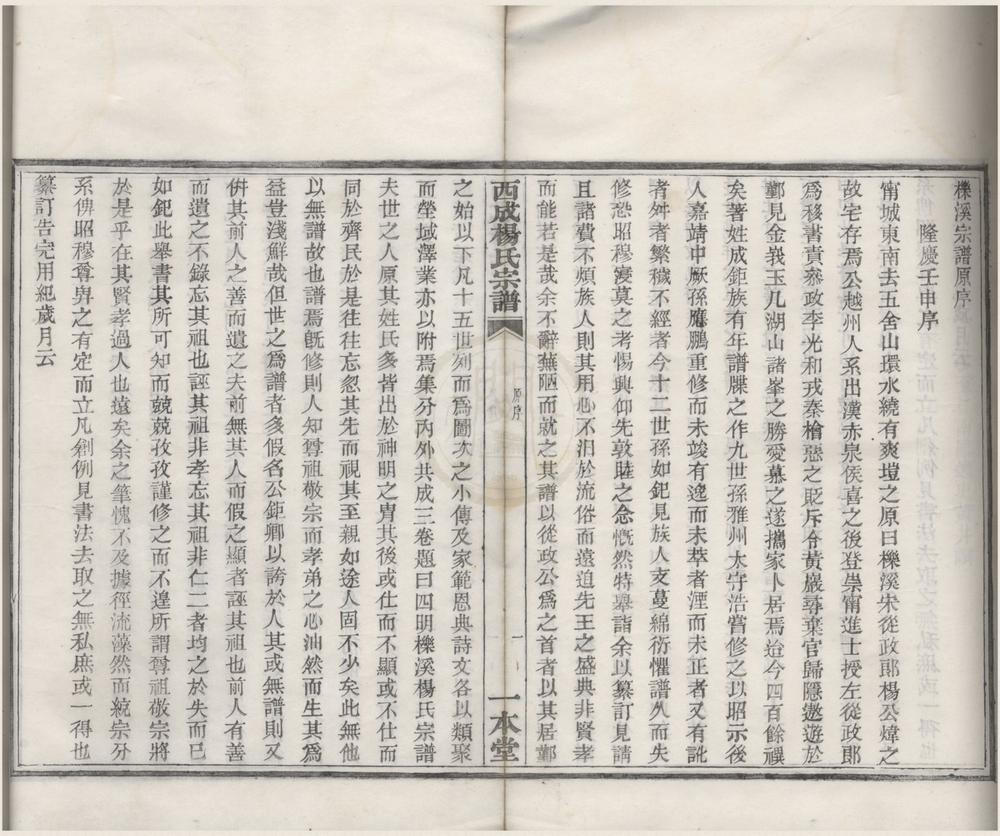 櫟溪宗譜原序
隆慶壬申序
甯城東南去五舍山環水繞有爽塏之原曰櫟溪宋從政郎楊公煒之
故宅存焉公越州人系出漢赤泉侯喜之後登崇甯進士授左從政郎
爲移書責叅政李光和戎秦檜惡之貶斥令黃巖尋棄官歸隱遨遊於
鄞見金峩玉几湖山諸峯之勝愛慕之遂攜家卜居焉迨今四百餘禩
矣著姓成鉅族有年譜牒之作九世孫雅州太守浩嘗修之以昭示後
人嘉靖中厥孫應鵬重修而未竣有逸而未萃者湮而未正者又有訛
者舛者繁穢不經者今十二世孫如鈀見族人支蔓綿衍懼譜久而失
修恐昭穆寖莫之考惕興仰先敦睦之念慨然特舉詣余以纂訂見請
且諸費不煩族人則其用心不汨於流俗而遠追先王之盛典非賢孝
而能若是哉余不辭蕪陋而就之其譜以從政公爲之首者以其居鄞
西成楊氏宗譜
原序
一
一本堂
之始以下凡十五世列而爲圖次之小傳及家範恩典詩文各以類聚
而塋域澤業亦以附焉集分內外共成三卷題曰四明櫟溪楊氏宗譜
夫世之人原其姓氏多皆出於神明之冑其後或仕而不顯或不仕而
同於齊民於是往往忘忽其先而視其至親如途人固不少矣此無他
以無譜故也譜焉旣修則人知尊祖敬宗而孝弟之心油然而生其爲
益豈淺鮮哉但世之爲譜者多假名公鉅卿以誇於人其或無譜則又
倂其前人之善而遺之夫前無其人而假之顯者誣其祖也前人有善
而遺之不錄忘其祖也誣其祖非孝忘其祖非仁二者均之於失而已
如鈀此舉書其所可知而兢兢孜孜謹修之而不遑所謂尊祖敬宗將
於是乎在其賢孝過人也遠矣余之筆愧不及據徑流藻然而統宗分
系俾昭穆尊卑之有定而立凡創例見書法去取之無私庶或一得也
纂訂告完用紀歲月云